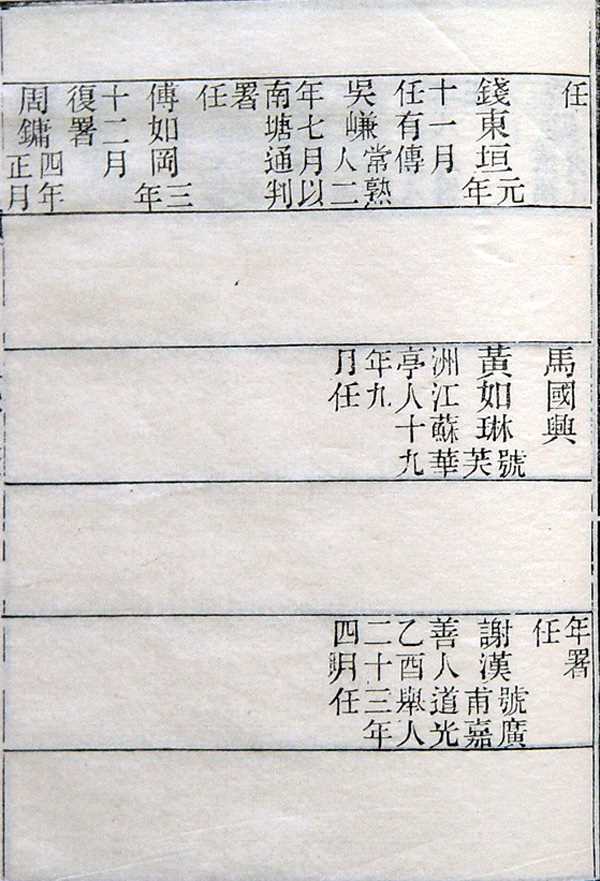 任
錢東垣元年
十一月
任有傳
吳嵰常熟人二
年七月以
南塘通判
署
任
傅如岡三年
十二月
復署
周鏞四年正月
馬國興
黃如琳號芙
洲江蘇華
亭人十九
年九
月任
年署
任
謝漢號廣甫嘉
善人道光
乙酉舉人
二十三年
四月任